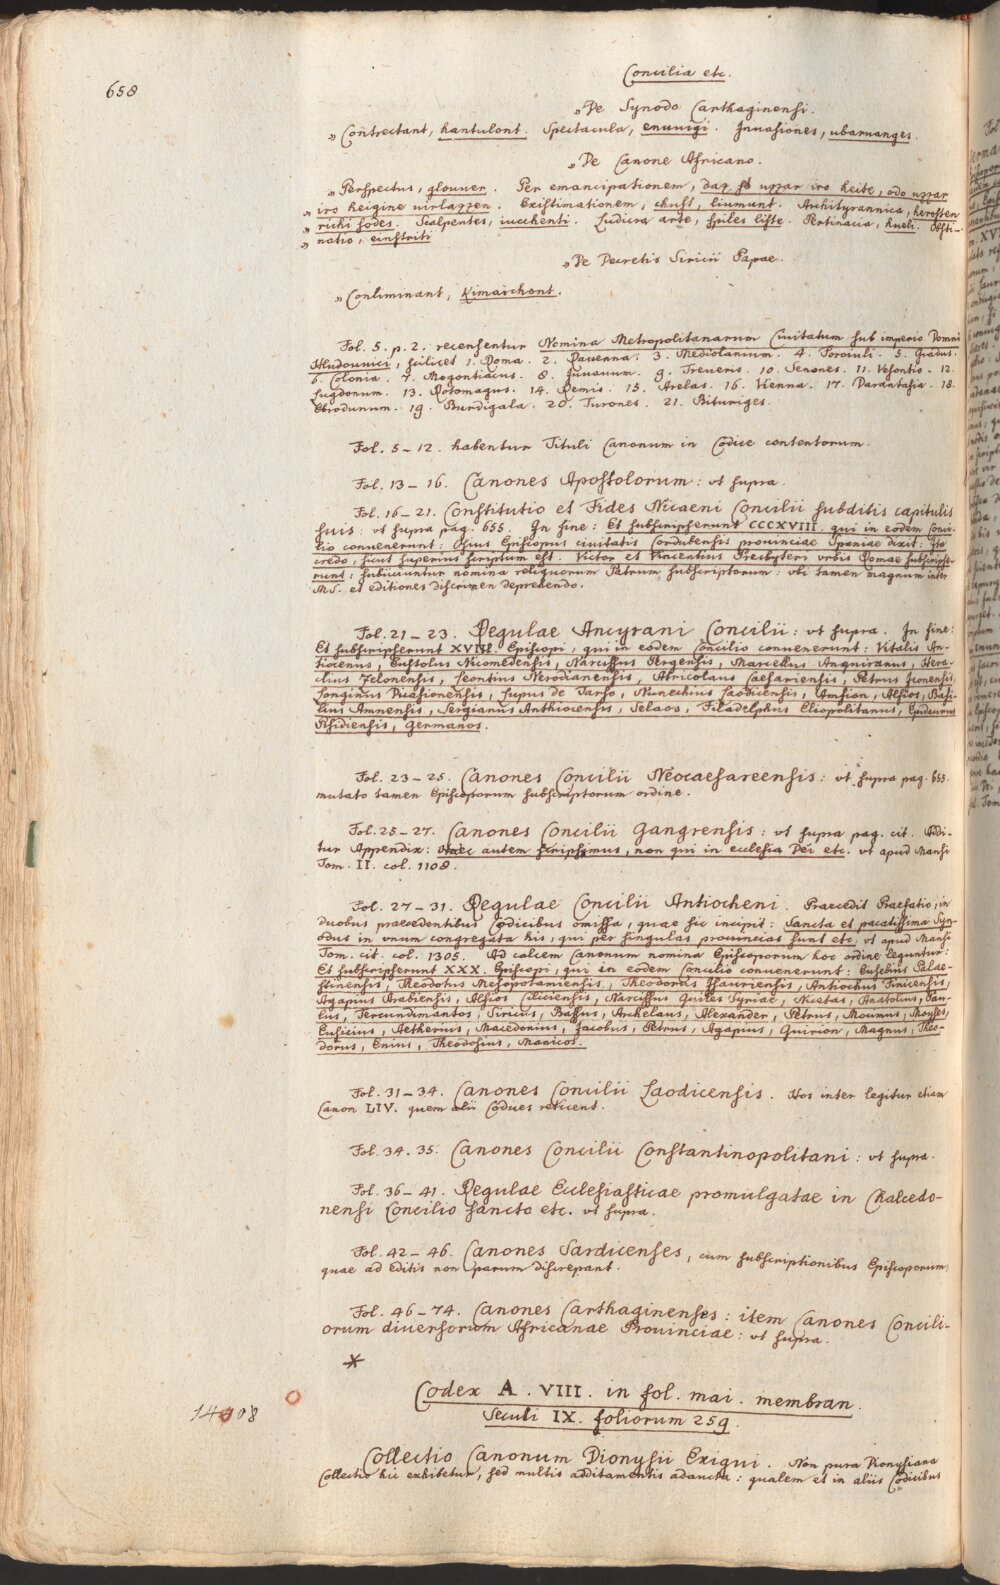 658
Concilia etc.
„De Synodo Carthaginensi.
„Contrectant, hantulont. Spectacula, enuuigi. Inuasiones, ubarnanges.
„De Canone Africano.
„Perspectus, glouuer. Per emancipationem, daz uzzar iro heite, odo uzzar
„iro heigine uirlazzen. Existimationem, chust, liumunt. Archityrannica, herosten
„richi sodes. Scalpentes, iucchenti. Ludicra arte, spiles liste. Pertinacia, hueli. Desti-
„natio, einstriti
„De Decretis Siricii Papae.
„Conliminant, kimarchont.
Fol. 5. p. 2. recensentur Nomina Metropolitanarum Ciuitatum sub imperio Domni
Hludouuici, scilicet 1. Roma. 2. Rauenna. 3. Mediolanum. 4. Foroiuli. 5. Gradus.
6. Colonia. 7. Mogontiacus. 8. Iuuauum. 9. Treueris. 10. Senones. 11. Vesontio. 12.
Lugdonum. 13. Rotomagus. 14. Remis. 15. Arelas. 16. Vienna. 17. Darantasia. 18.
Ebrodunum. 19. Burdigala. 20. Turones. 21. Bituriges.
Fol. 5–12. habentur Tituli Canonum in Codice contentorum.
Fol. 13–16. Canones Apostolorum: vt supra.
Fol. 16–21. Constitutio et Fides Nicaeni Concilii subditis capitulis
suis: vt supra pag. 655. In fine: Et subscripserunt CCCXVIII. qui in eodem Conci-
lio conuenerunt: Osius Episcopus ciuitatis Cordubensis prouinciae Spaniae dixit: Ita
credo, sicut superius scriptum est. Victor et Vincentius Presbyteri vrbis Romae subscripse-
runt: subiiciuntur nomina reliquorum Patrum subscriptorum: vbi tamen magnum inter
MS. et editiones discrimen deprehendo.
Fol. 21–23. Regulae Ancyrani Concilii: vt supra. In fine:
Et subscripserunt XVIII. Episcopi, qui in eodem Concilio conuenerunt: Vitalis An-
tiocenus, Eustolus Nicomedensis, Narcissus Pergensis, Marcellus Anquiranus, Hera-
clius Zelonensis, Leontius Nerodianensis, Agricolaus Caesariensis, Petrus Iconensis,
Longinus Vicasionensis, Lupus de Tarso, Nunechius Laodicensis, Amsion, Alsios, Basi-
lius Amnensis, Sergianus Anthiocensis, Selaos, Filadelphus Eliopolitanus, Epidaurus
Pisidiensis, Germanos.
Fol. 23–25. Canones Concilii Neocaesareensis: vt supra pag. 655.
mutato tamen Episcoporum subscriptorum ordine.
Fol. 25–27. Canones Concilii Gangrensis: vt supra pag. cit. Addi-
tur Appendix: Haec autem scripsimus, non qui in ecclesia Dei etc. vt apud Mansi
Tom. II. col. 1108.
Fol. 27–31. Regulae Concilii Antiocheni. Praecedit Praefatio, in
duobus praecedentibus Codicibus omissa, quae sic incipit: Sancta et pacatissima Syn-
odus in vnum congregata his, qui per singulas prouincias sunt etc. vt apud Mansi
Tom. cit. col. 1305. Ad calcem Canonum nomina Episcoporum hoc ordine leguntur:
Et subscripserunt XXX. Episcopi, qui in eodem Concilio conuenerunt: Eusebius Palae-
stinensis, Theodotus Mesopotamiensis, Theodorus Isauriensis, Antiochus Finicensis,
Agapius Arabiensis, Alsios Ciliciensis, Narcissus Quiles Syriae, Nicetas, Anatolius, Pau-
lus, Tercundimantos, Siricus, Bassus, Archelaus, Alexander, Petrus, Moumus, Moyses,
Eusicius, Aetherius, Macedonius, Jacobus, Petrus, Agapius, Quirion, Magnus, Theo-
dorus, Enius, Theodosius, Manicos.
Fol. 31–34. Canones Concilii Laodicensis. Hos inter legitur etiam
Canon LIV. quem alii Codices reticent.
Fol. 34. 35. Canones Concilii Constantinopolitani: vt supra.
Fol. 36–41. Regulae Ecclesiasticae promulgatae in Chalcedo-
nensi Concilio sancto etc. vt supra.
Fol. 42–46. Canones Sardicenses, cum subscriptionibus Episcoporum,
quae ad editis non parum discrepant.
Fol. 46–74. Canones Carthaginenses: item Canones Concili-
orum diuersorum Africanae Prouinciae: vt supra.
*
Codex A. VIII. in fol. mai. membran.
Seculi IX. foliorum 259.
14008
Collectio Canonum Dionysii Exigui. Non pura Dionysiana
Collectio hic exhibetur, sed multis additamentis adaucta: qualem et in aliis Codicibus